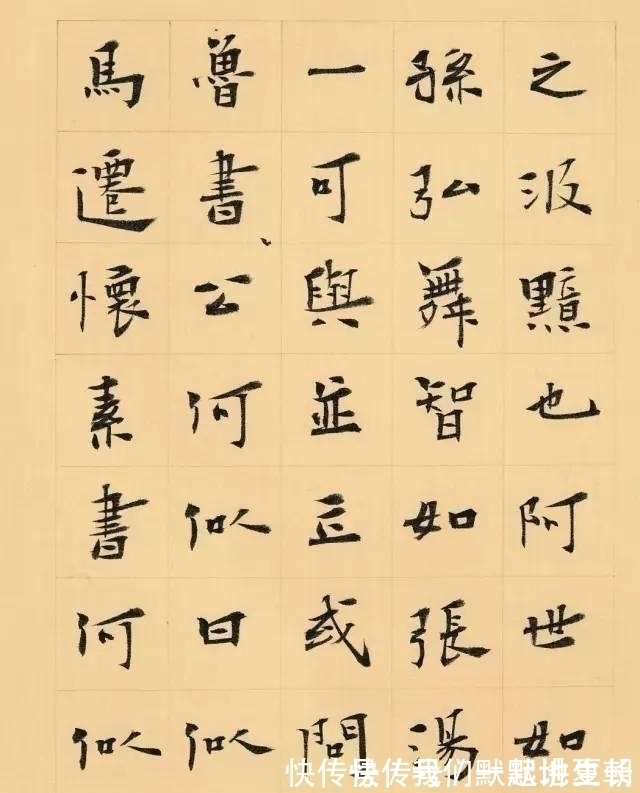 之汲黯也阿世如
孫弘舞智如張湯
一可與並立或問
魯書公何似曰似
馬遷懷素書何似
快传号